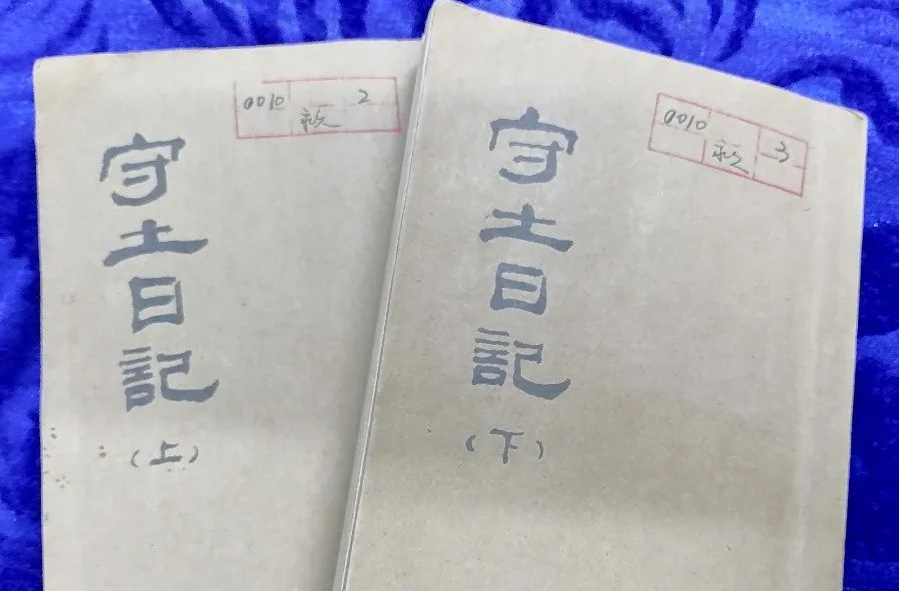 0010 2
守土日記
(上)
0010
3
守土日記
(下)